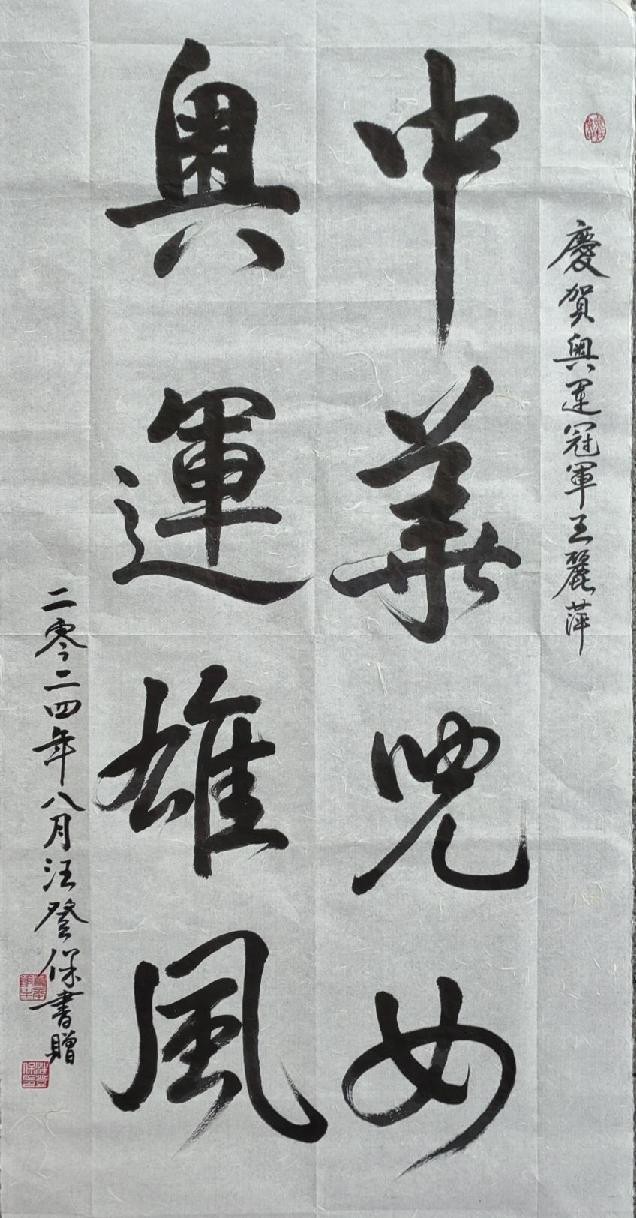 慶賀奥運冠軍王麗萍
中華兒女
奥運雄風
二零二四年八月汪登保書贈